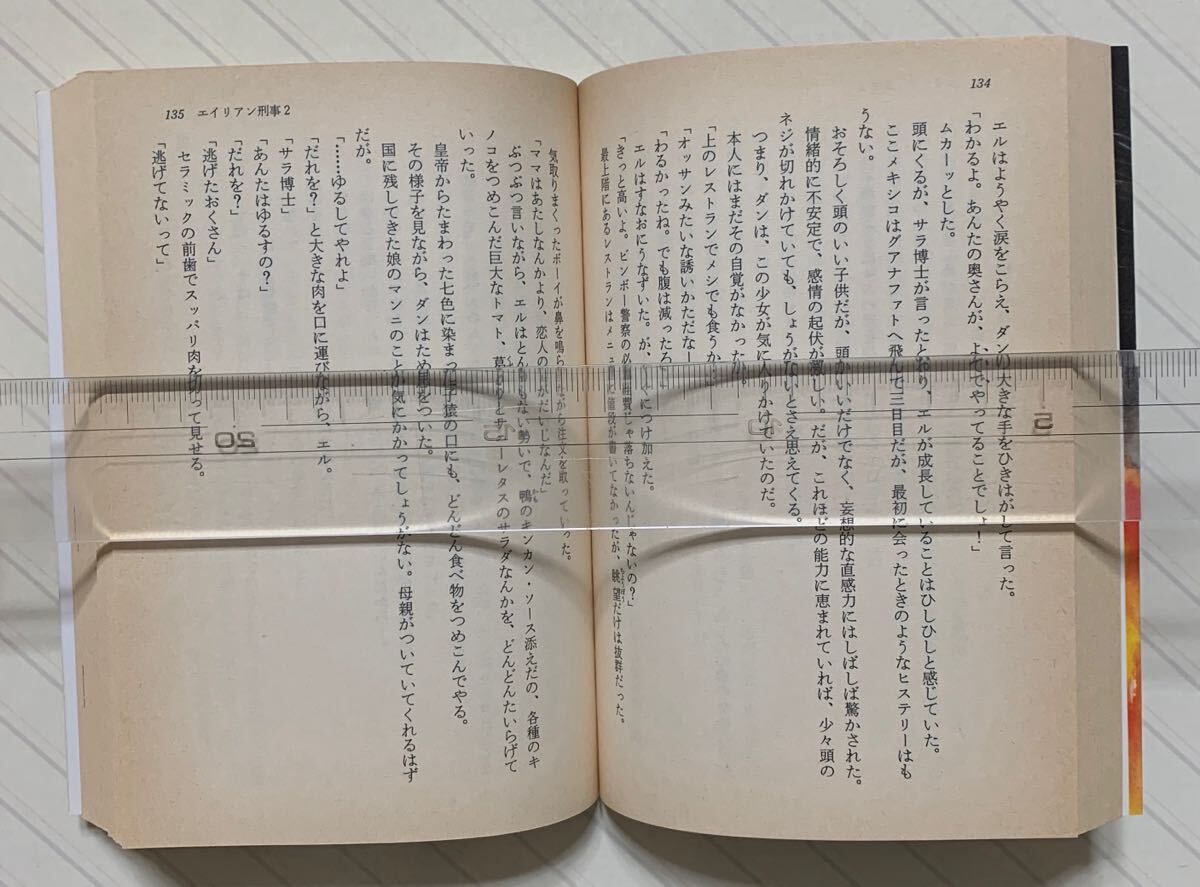 134
エルはようやく涙をこらえ、ダンの大きな手をひきはがして言った。
「わかるよ。あんたの奥さんが、よそでやってることでしょ！」
ムカーッとした。
頭にくるが、サラ博士が言ったとおり、エルが成長していることはひしひしと感じていた。
ここメキシコはグアナファトへ飛んで三日目だが、最初に会ったときのようなヒステリーはも
うない。
おそろしく頭のいい子供だが、頭がいいだけでなく、妄想的な直感力にはしばしば驚かされた。
情緒的に不安定で、感情の起伏が激しい。だが、これほどの能力に恵まれていれば、少々頭の
ネジが切れかけていても、しょうがないとさえ思えてくる。
つまり、ダンは、この少女が気に入りかけていたのだ。
本人にはまだその自覚がなかったが。
「上のレストランでメシでも食うか」
「オッサンみたいな誘いかただなー」
「わるかったね。でも腹は減ったろ」
エルはすなおにうなずいた。が、につけ加えた。
「きっと高いよ。ビンボー警察の必要経費じゃ落ちないんじゃないの？」
最上階にあるレストランはメニューに値段が書いてなかったが、眺望だけは抜群だった。
135 エイリアン刑事2
気取りまくったボーイが鼻を鳴らしながら注文を取っていった。
「ママはあたしなんかより、恋人のほうがだいじなんだ」
ぶつぶつ言いながら、エルはとんでもない勢いで、鴨のキンカン・ソース添えだの、各種のキ
ノコをつめこんだ巨大なトマト、草とサニーレタスのサラダなんかを、どんどんたいらげて
いった。
皇帝からたまわった七色に染まった子猿の口にも、どんどん食べ物をつめこんでやる。
その様子を見ながら、ダンはため息をついた。
国に残してきた娘のマンニのことが気にかかってしょうがない。母親がついていてくれるはず
だが。
「……ゆるしてやれよ」
「だれを？」と大きな肉を口に運びながら、エル。
「サラ博士」
「あんたはゆるすの？」
「だれを？」
「逃げたおくさん」
セラミックの前歯でスッパリ肉を切って見せる。
「逃げてないって」
5
10
15
20